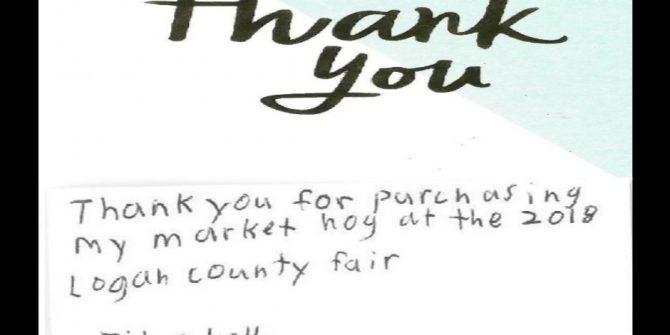 Thank
you
Thank you for purchasing
my market hog at the 2018
Logan county fair